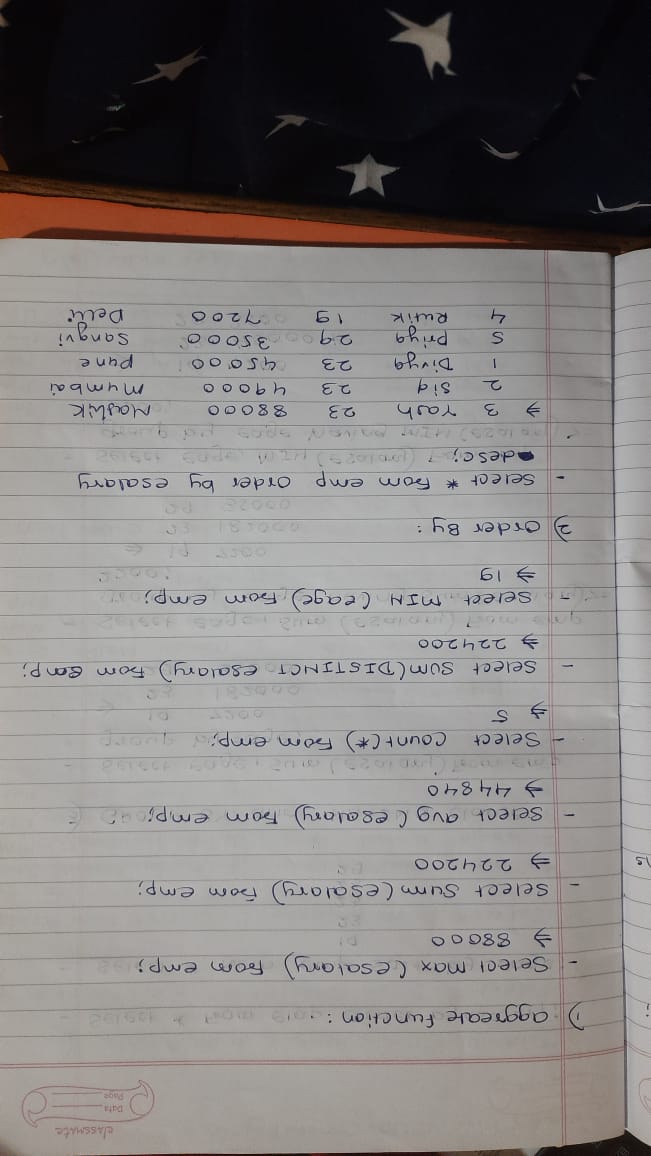 classmate
Date
Page
1) aggreate function :
- Select max (esalary) from emp;
⇒ 88000
- Select sum (esalary) from emp;
⇒ 224200
- Select avg (esalary) from emp;
⇒ 44840
- Select count (*) from emp;
⇒ 5
- Select SUM (DISTINCT esalary) from emp;
⇒ 224200
- Select MIN (eage) from emp;
⇒ 19
2) Order By :
- Select * from emp order by esalary
desc;
⇒ 3 Yash 23 88000 Nashik
2 Sid 23 49000 Mumbai
1 Divya 23 45000 Pune
5 Priya 29 35000 Sangvi
4 Rutik 19 7200 Delli